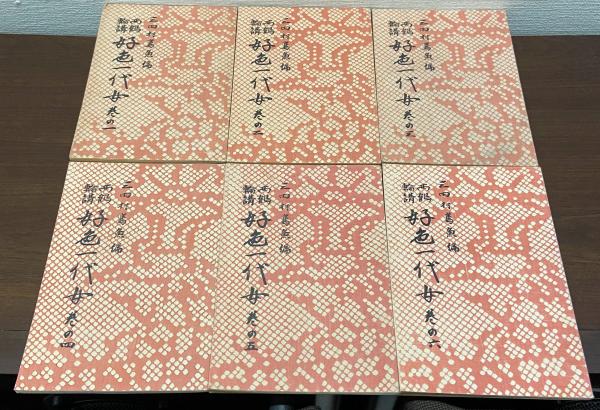 三田村鳶魚編
西鶴
輪講
好色一代女
巻の一
三田村鳶魚編
西鶴
輪講
好色一代女
巻の二
三田村鳶魚編
西鶴
輪講
好色一代女
巻の三
三田村鳶魚編
西鶴
輪講
好色一代女
巻の四
三田村鳶魚編
西鶴
輪講
好色一代女
巻の五
三田村鳶魚編
西鶴
輪講
好色一代女
巻の六